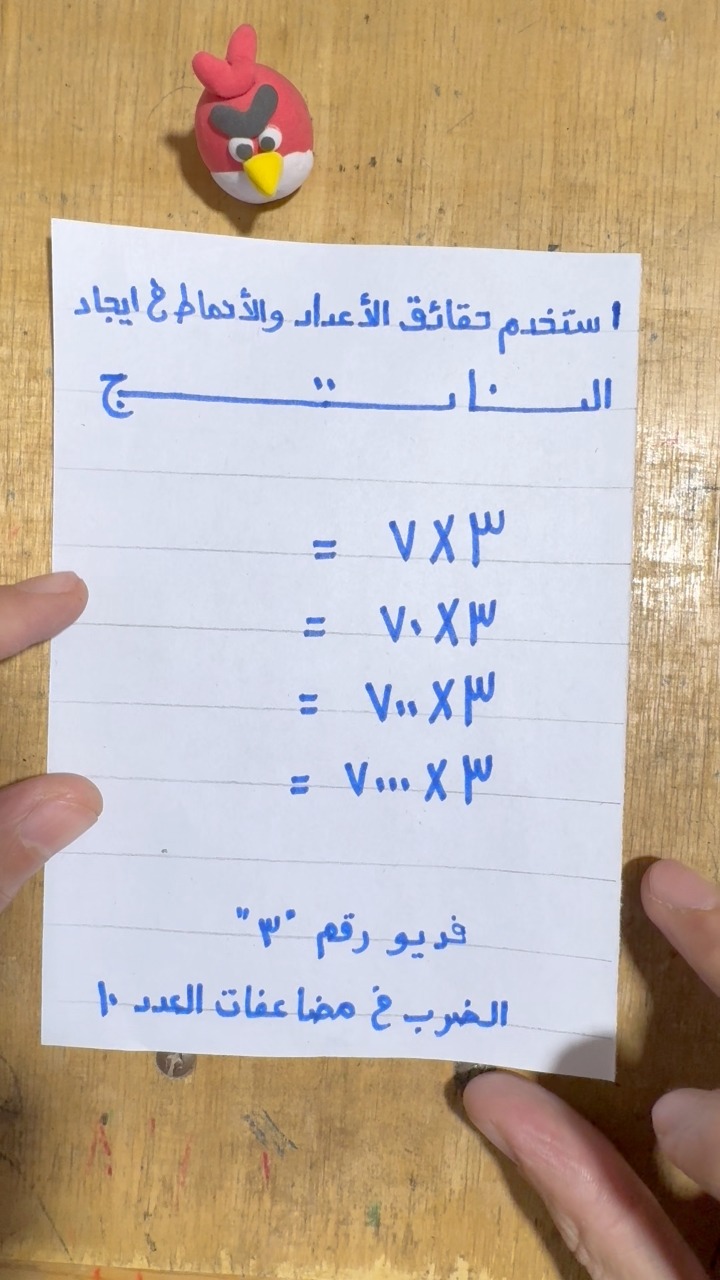 استخدم حقائق الأعداد والأنماط في ايجاد
النـــاتـــــــج
٣ × ٧ =
٣ × ٧٠ =
٣ × ٧٠٠ =
٣ × ٧٠٠٠ =
فديو رقم "٣"
الضرب في مضاعفات العدد ١٠